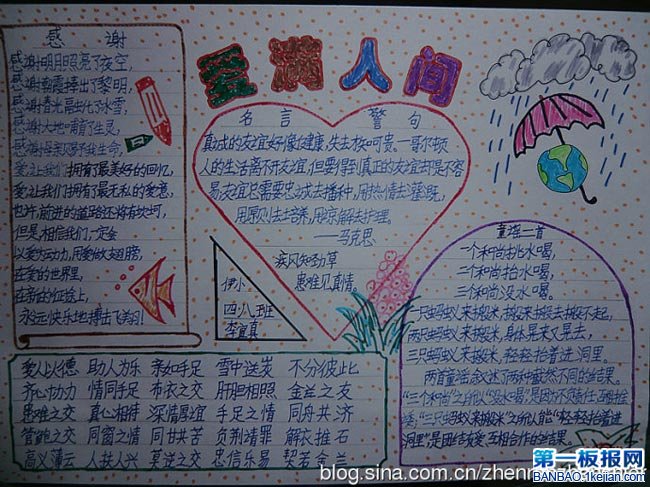 爱满人间
感 谢
感谢明月照亮了夜空,
感谢朝霞捧出了黎明,
感谢春光融化了冰雪,
感谢大地哺育了生灵,
感谢母亲赐予我生命,
爱,让我们拥有最美好的回忆,
爱,让我们拥有最无私的爱意,
也许,前进的道路还将有坎坷,
但是,相信我们,一定会
以爱为动力,用爱做支翅膀,
在爱的世界里,
在新的征途上,
永远快乐地搏击飞翔!
名 言 警 句
真诚的友谊好像健康,失去
人的生活离不开友谊,但要得到真正的友谊却是不容
易,友谊总需要忠诚去播种,用热情去灌溉,
用原则去培养,用谅解去护理。
——马克思
疾风知劲草
患难见真情。
伊小
四八班
李宜真
童谣二首
一个和尚挑水喝,
二个和尚抬水喝,
三个和尚没水喝。
一只蚂蚁来搬米,搬来搬去搬不起,
两只蚂蚁来搬米,身体晃来又晃去,
三只蚂蚁来搬米,轻轻抬着进洞里。
两首童谣,叙述了两种截然不同的结果。
“三个和尚”之所以“没水喝”是因为不负责任,互相推
诿;“三只蚂蚁来搬米”之所以能“轻轻抬着进
洞里”,是团结友爱、互相合作的结果。
爱人以德 助人为乐 亲如手足 雪中送炭 不分彼此
齐心协力 情同手足 布衣之交 肝胆相照 金兰之友
患难之交 真心相待 深情厚谊 手足之情 同舟共济
管鲍之交 同窗之情 同甘共苦 负荆请罪 解衣推石
高义薄云 人扶人兴 莫逆之交 忠信乐易 契若金兰
blog.sina.com.cn/zhenn
第一板报网
BANBAO.1kejian.com